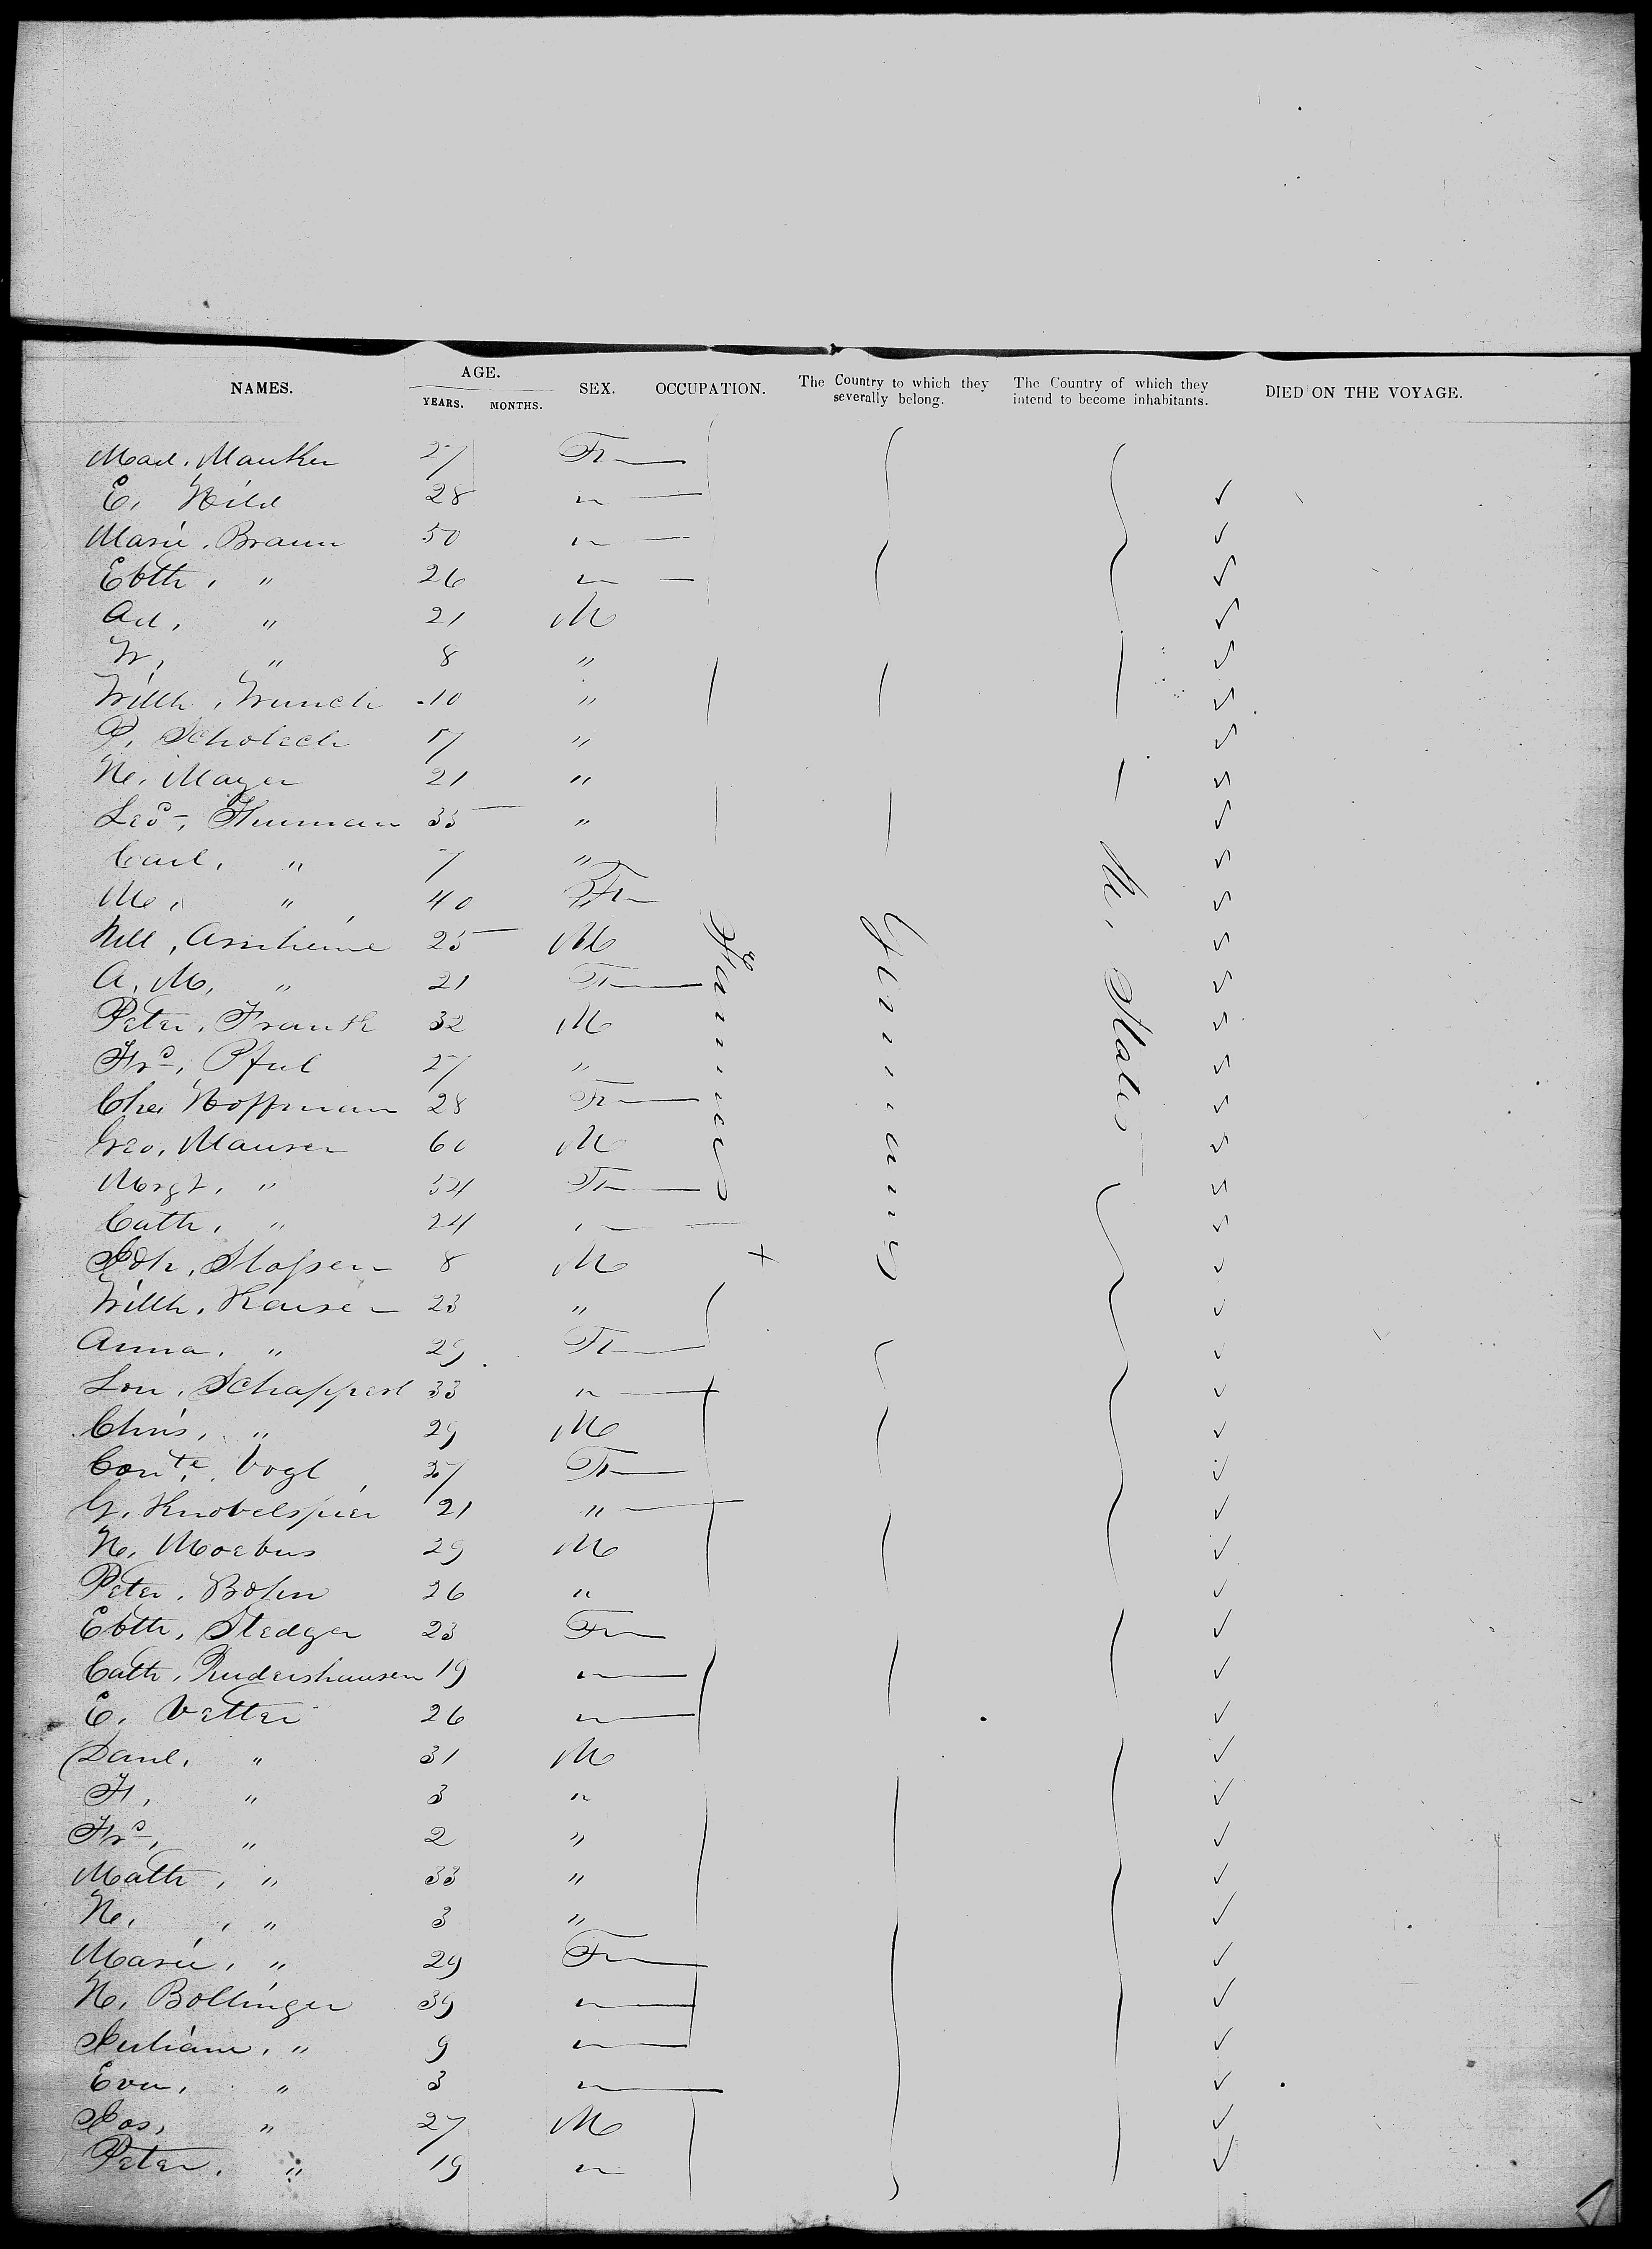 NAMES. AGE. YEARS. MONTHS. SEX. OCCUPATION. The Country to which they severally belong. The Country of which they intend to become inhabitants. DIED ON THE VOYAGE.
Mad. 27 F
E. Hild 28 "
Marie. Braun 50 "
Ebth, " 26 "
Ad, " 21 M
W, " 8 "
Wilh, Wunch 10 "
P. 17 "
H. Mayer 21 "
Leo, 35 "
Carl, " 7 "
M, " 40 F
25 M
A. M, " 21 F
Peter. Frank 32 M
Frs, Pful 27 "
Chs Hoffman 28 F
Geo, Mauser 60 M
Margt, " 54 F
Cath, " 24 "
Joh, 8 M
Wilh. Hauser 23 "
Anna, " 29 F
Lou, Schappert 33 "
Chris, " 29 M
Vogt 27 F
G, Knobelspier 21 "
H. Moebus 29 M
Peter. Böhn 26 "
Ebth, Stedger 23 F
Cath, Rudershausen 19 "
E. Vetter 26 "
Danl, " 31 M
F, " 3 "
Frs, " 2 "
Math, " 33 "
H. " 3 "
Marie, " 29 F
H. Bollinger 39 "
Juliane, " 9 "
Eva, " 3 "
Jos, " 27 M
Peter. " 19 "
Farmers
Germany
U. States